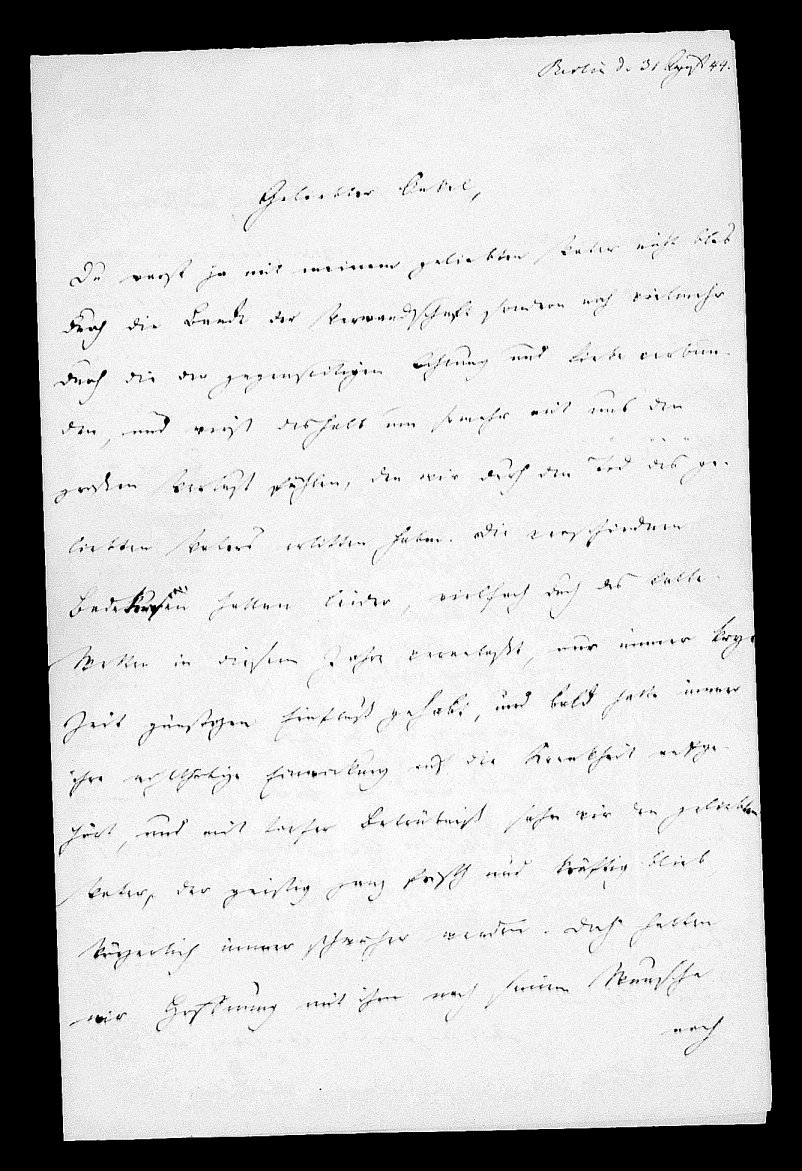 Berlin d. 31 August 44.
Geliebter Onkel,
Du warst ja mit meinem geliebten Vater nicht blos
durch die Bande der Verwandschaft sondern noch vielmehr
durch die der gegenseitigen Achtung und Liebe verbun-
den, und wirst deshalb um so mehr mit uns den
großen Verlust fühlen, den wir durch den Tod des ge-
liebten Vaters erlitten haben. Die verschiednen
Badekuren hatten leider, vielfach durch das kalte
Wetter in diesem Jahre veranlaßt, nur immer kurze
Zeit günstigen Einfluß gehabt, und bald hatte immer
ihre wohlthätige Einwirkung auf die Krankheit aufge-
hört, und mit tiefer Betrübniß sahen wir den geliebten
Vater, der geistig ganz frisch und kräftig blieb
körperlich immer schwächer werden. Doch hatten
wir Hoffnung mit ihm nach seinem Wunsche
noch